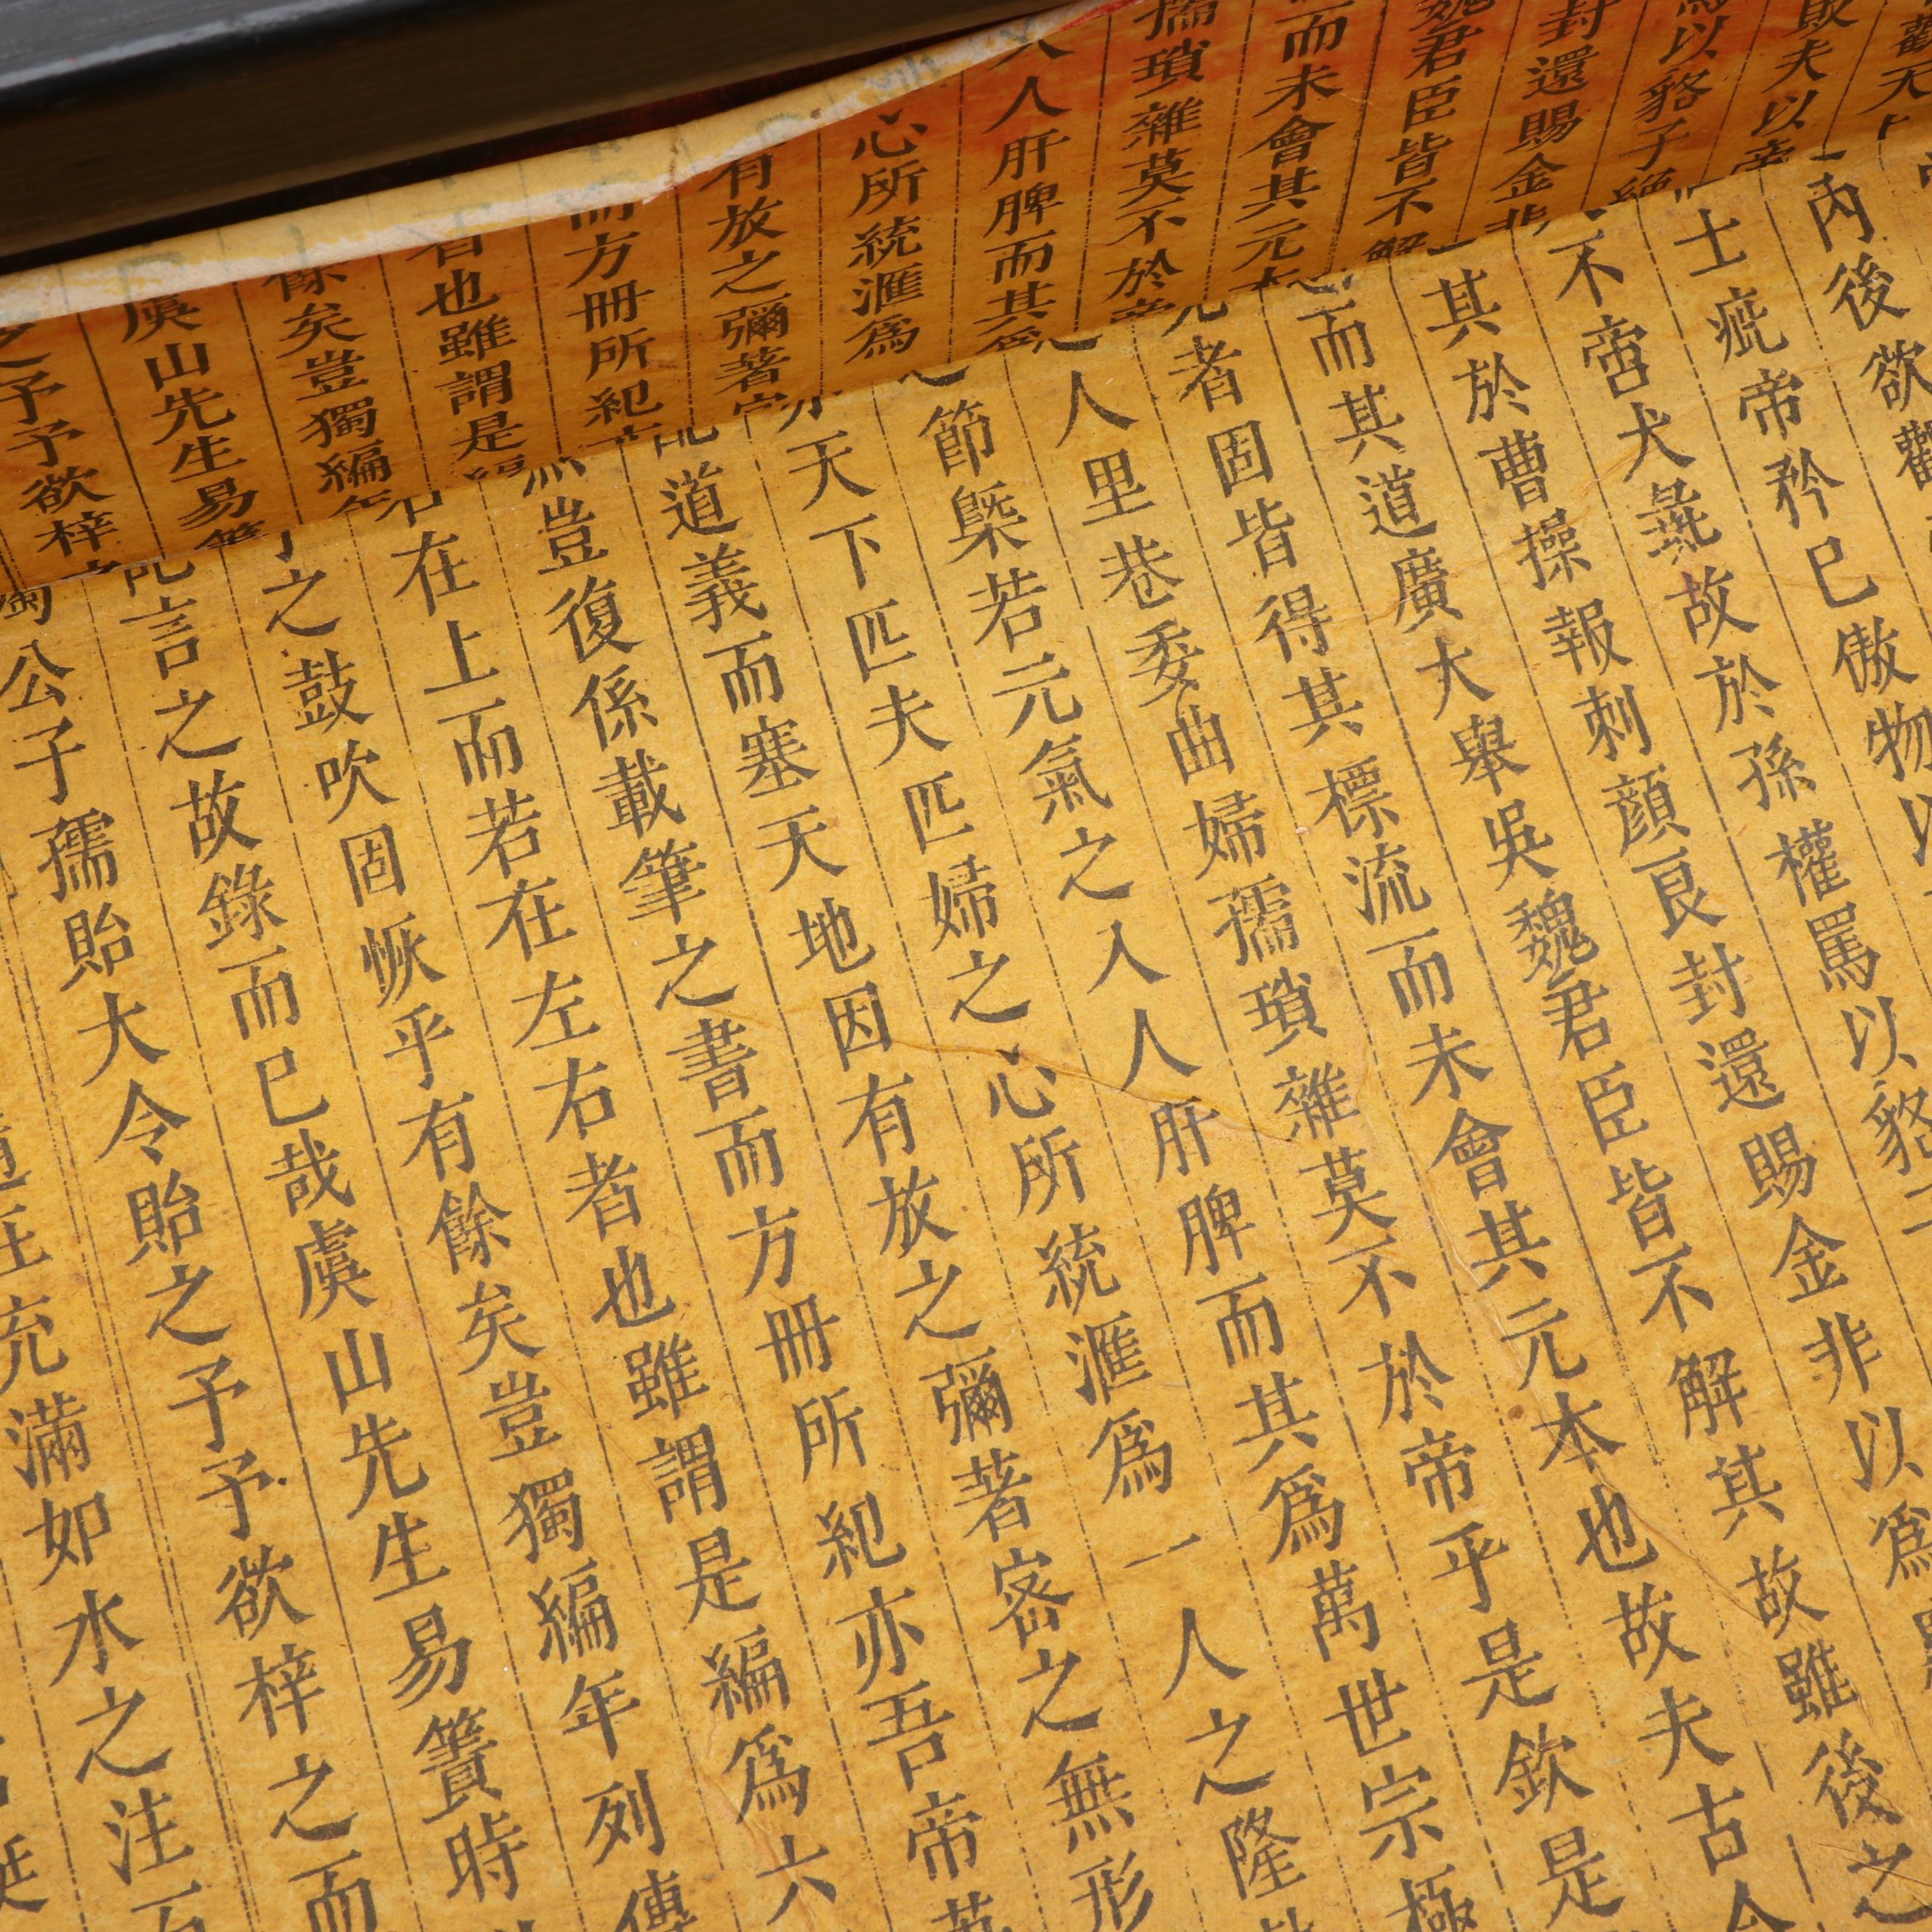 觀天
敗夫以帝
以貉子
封還賜金非
魏君臣皆不解
而未會其元本
孺瑣雜莫不於帝
人人肝脾而其為
心所統滙爲
有放之彌著密
而方冊所紀
者也雖謂是編
餘矣豈獨編年
虞山先生易簀
之予予欲梓
丙後欲觀
士疵帝矜已傲物以
不啻犬彘故於孫權罵以貉子
其於曹操報刺顏良封還賜金非以爲
而其道廣大舉吳魏君臣皆不解其故雖後之
者固皆得其標流而未會其元本也故夫古今
人里巷委曲婦孺瑣雜莫不於帝乎是欽是
節槩若元氣之入人肝脾而其爲萬世宗極
天下匹夫匹婦之心所統滙爲一人之隆
道義而塞天地因有放之彌著密之無形
豈復係載筆之書而方冊所紀亦吾帝
在上而若在左右者也雖謂是編爲六
之鼓吹固恢乎有餘矣豈獨編年列傳
言之故錄而已哉虞山先生易簀時
公子孺貽大令貽之予予欲梓之而
在充滿如水之注